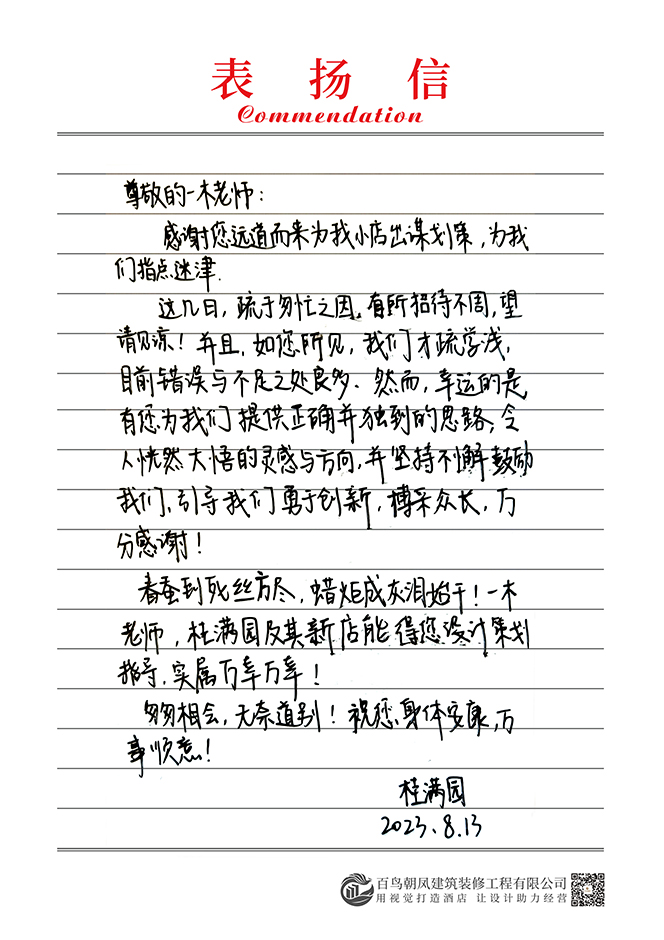 表扬信
Commendation
尊敬的一木老师：
感谢您远道而来为我小店出谋划策，为我
们指点迷津.
这几日，疏于匆忙之因，有所招待不周，望
请见谅！并且，如您所见，我们才疏学浅，
目前错误与不足之处良多. 然而，幸运的是
有您为我们提供正确并独到的思路，令
人恍然大悟的灵感与方向，并坚持不懈鼓励
我们，引导我们勇于创新，博采众长，万
分感谢！
春蚕到死丝方尽，蜡炬成灰泪始干！一木
老师，桂满园及其新店能得您设计策划
指导，实属万幸万幸！
匆匆相会，无奈道别！祝您身体安康，万
事顺意！
桂满园
2023.8.13
百鸟朝凤建筑装修工程有限公司
用视觉打造酒店 让设计助力经营